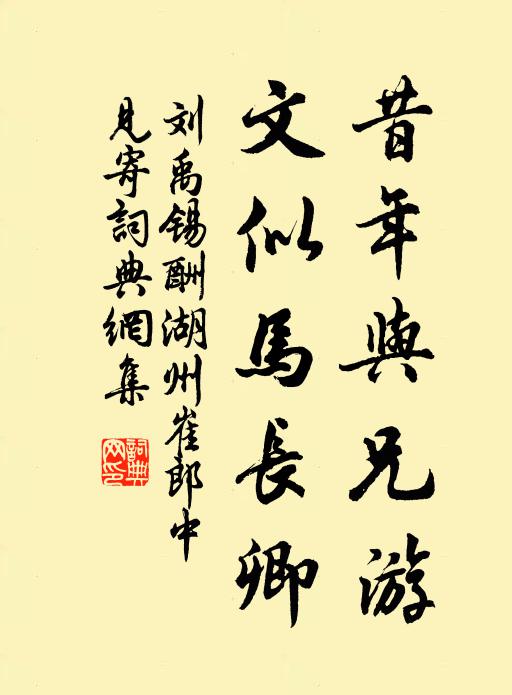 昔年與兄游
文似馬長卿
刘禹锡酬湖州崔郎中
見寄詞典網集
詞典网印